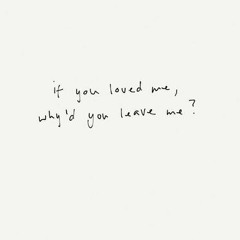 if you loved me,
why'd you leave me?